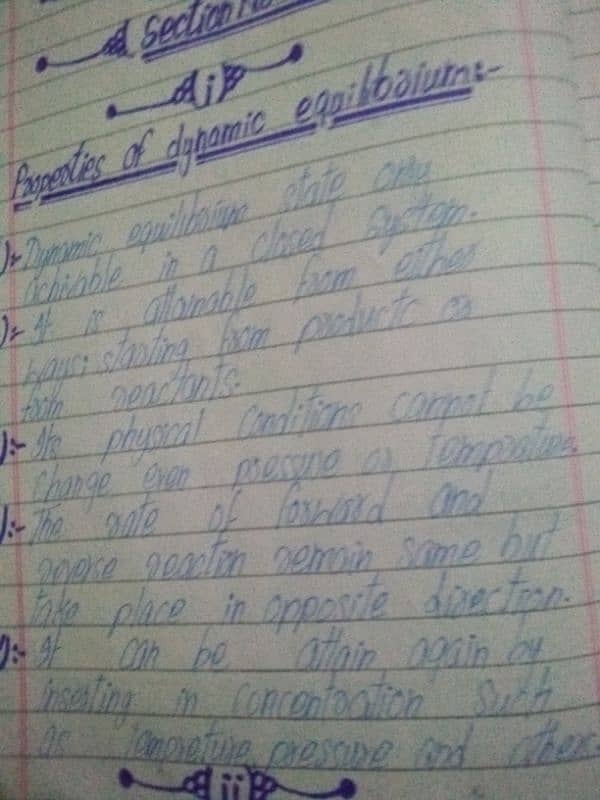 Section
i
Properties of dynamic equilibrium:-
):- Dynamic equilibrium state only
achivable in a closed system.
):- It is attainable from either
ways; starting from products or
from reactants.
):- Its physical conditions cannot be
change even pressure or temprature.
):- The rate of forward and
reverse reaction remain same but
take place in opposite direction.
):- It can be attain again by
inserting in concentration such
as tempreture, pressure and other.
ii